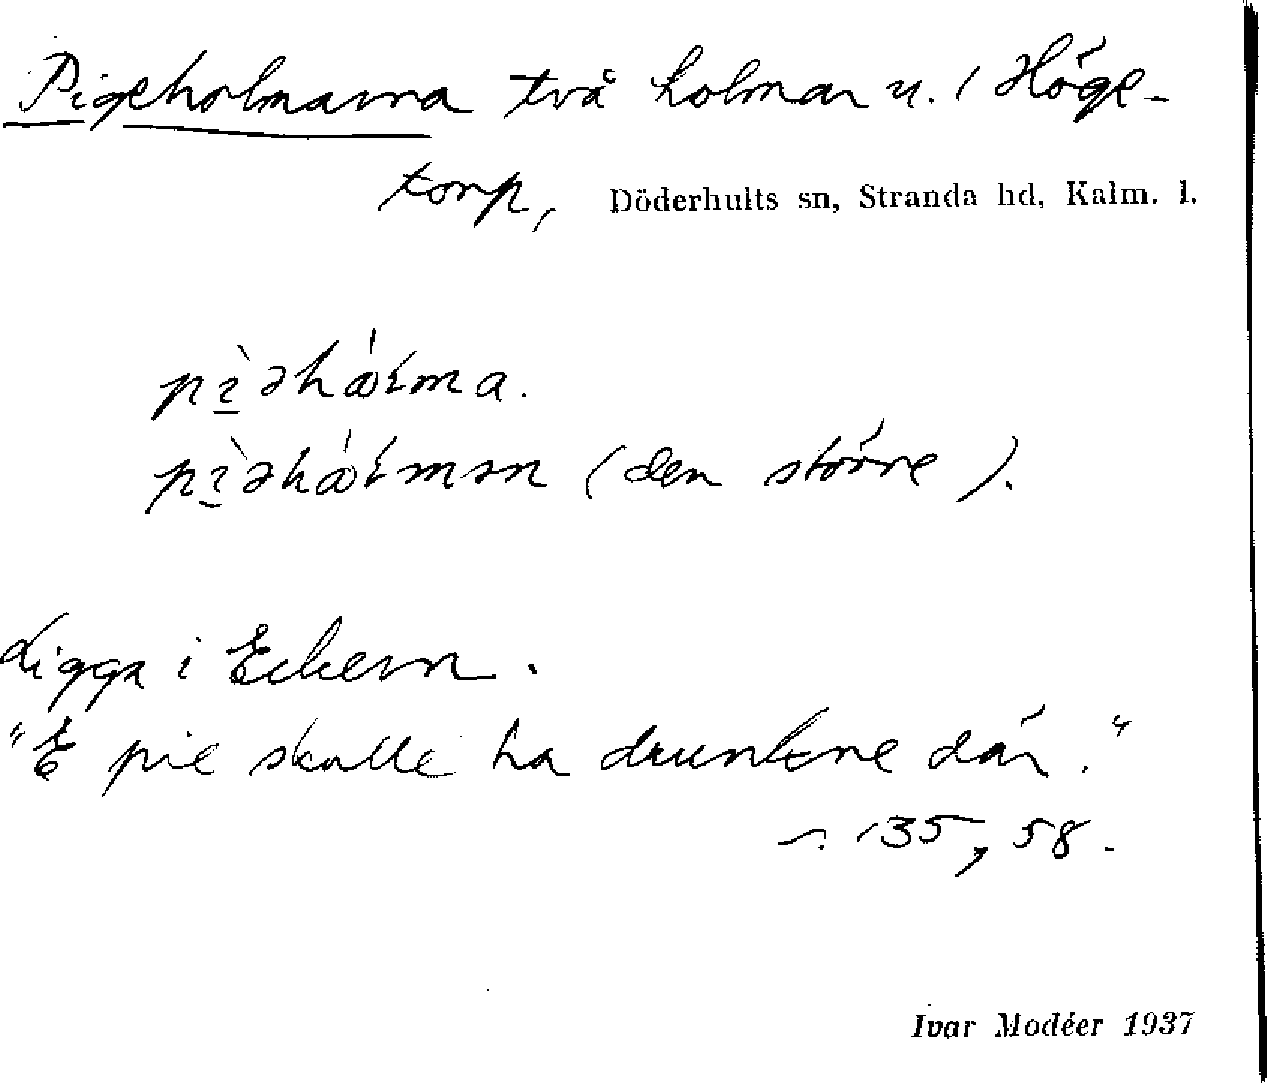 Pigeholmarna två holmar u. 1 Höge-
torp, Döderhults sn, Stranda hd, Kalm. l.
(den större).
Ligga i Eckern.
"E pie skulle ha drunkne där."
135, 58.
Ivar Modéer 1937